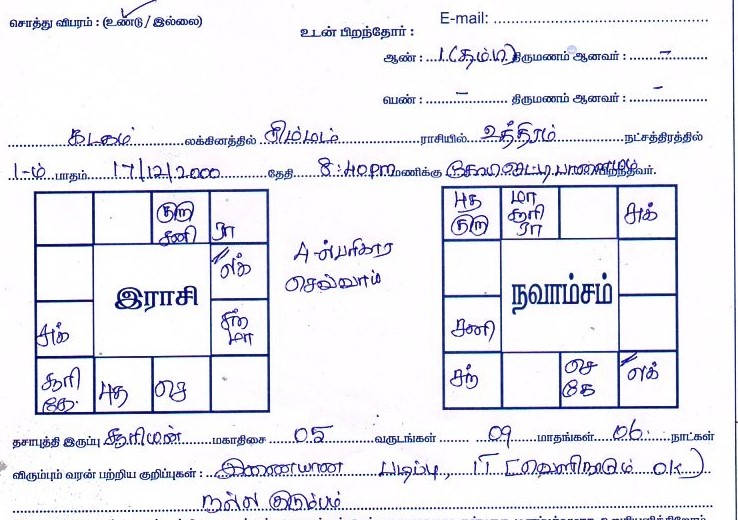 சொத்து விபரம் : (உண்டு / இல்லை)
E-mail:
உடன் பிறந்தோர் :
ஆண் : 1 (தம்பி) திருமணம் ஆனவர் : -
பெண் : - திருமணம் ஆனவர் : -
கடகம் லக்கினத்தில் சிம்மம் ராசியில் உத்திரம் நட்சத்திரத்தில்
1-ம் பாதம் 17/12/2000 தேதி 8:40 PM மணிக்கு பிறந்தவர்.
குரு சனி ரா
லக்
இராசி
சுக் சந் மா
சூரி கே. புத செ
4-ல் பரிகார செவ்வாய்
புத குரு மா சூரி ரா சுக்
நவாம்சம்
சனி
சந் செ கே லக்
தசாபுத்தி இருப்பு சூரியன் மகாதிசை 05 வருடங்கள் 09 மாதங்கள் 06 நாட்கள்
விரும்பும் வரன் பற்றிய குறிப்புகள் : இணையான படிப்பு, IT [வெளிநாடும் OK]
நல்ல குடும்பம்